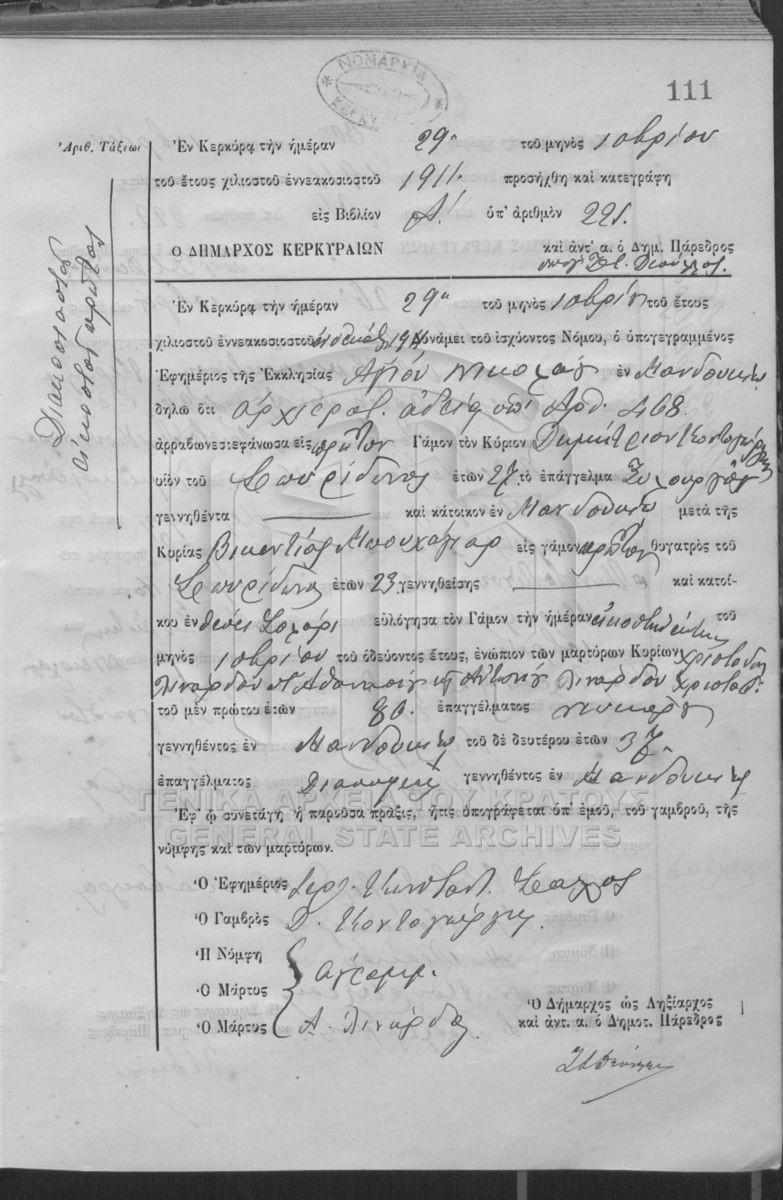 ΝΟΜΑΡΧΙΑ
ΚΕΡΚΥΡΑΣ
111
Ἀριθ. Τάξεως
Διακοσιοστὸς
εἰκοστὸς πρῶτος
Ἐν Κερκύρᾳ τὴν ἡμέραν 29η τοῦ μηνὸς 10βρίου
τοῦ ἔτους χιλιοστοῦ ἐννεακοσιοστοῦ 1911. προσήχθη καὶ κατεγράφη
εἰς Βιβλίον Α! ὑπ' ἀριθμὸν 221.
Ο ΔΗΜΑΡΧΟΣ ΚΕΡΚΥΡΑΙΩΝ καὶ ἀντ' α. ὁ Δημ. Πάρεδρος
Ἐν Κερκύρᾳ τὴν ἡμέραν 29η τοῦ μηνὸς 10βρίου τοῦ ἔτους
χιλιοστοῦ ἐννεακοσιοστοῦ ἑνδεκάτου 1911 δυνάμει τοῦ ἰσχύοντος Νόμου, ὁ ὑπογεγραμμένος
Ἐφημέριος τῆς Ἐκκλησίας Ἁγίου Νικολάου ἐν Μανδουκίῳ
δηλῶ ὅτι ἀρχιερατ. ἀδείᾳ ὑπ' Ἀρθ. 468
ἀρραβωνεστεφάνωσα εἰς πρῶτον Γάμον τὸν Κύριον Δημήτριον Κοντογιώργην
υἱὸν τοῦ Σπυρίδωνος ἐτῶν 27 τὸ ἐπάγγελμα Ξυλουργὸν
γεννηθέντα καὶ κάτοικον ἐν Μανδουκίῳ μετὰ τῆς
Κυρίας Βικεντίας Μπουχάγιαρ εἰς γάμον πρῶτον θυγατρὸς τοῦ
Σπυρίδωνος ἐτῶν 23 γεννηθείσης καὶ κατοί-
κου ἐν θέσει Σολάρι εὐλόγησα τὸν Γάμον τὴν ἡμέραν τοῦ
μηνὸς 10βρίου τοῦ ὁδεύοντος ἔτους, ἐνώπιον τῶν μαρτύρων Κυρίων Χριστόδ.
Λινάρδου Ἀθανασίου καὶ Ἀντωνίου Λινάρδου Χριστοδ.
τοῦ μὲν πρώτου ἐτῶν 80. ἐπαγγέλματος
γεννηθέντος ἐν Μανδουκίῳ τοῦ δὲ δευτέρου ἐτῶν 37.
ἐπαγγέλματος γεννηθέντος ἐν Μανδουκίῳ
ΓΕΝΙΚΑ ΑΡΧΕΙΑ ΤΟΥ ΚΡΑΤΟΥΣ
Ἐφ' ᾧ συνετάγη ἡ παροῦσα πρᾶξις, ἥτις ὑπογράφεται ὑπ' ἐμοῦ, τοῦ γαμβροῦ, τῆς
GENERAL STATE ARCHIVES
νύμφης καὶ τῶν μαρτύρων.
Ὁ Ἐφημέριος Κωνσταντ.
Ὁ Γαμβρὸς Δ. Κοντογιώργης.
Ἡ Νύμφη
Ὁ Μάρτυς ἀγράμμ.
Ὁ Μάρτυς Α. Λινάρδος
Ὁ Δήμαρχος ὡς Ληξίαρχος
καὶ ἀντ. α. ὁ Δημοτ. Πάρεδρος